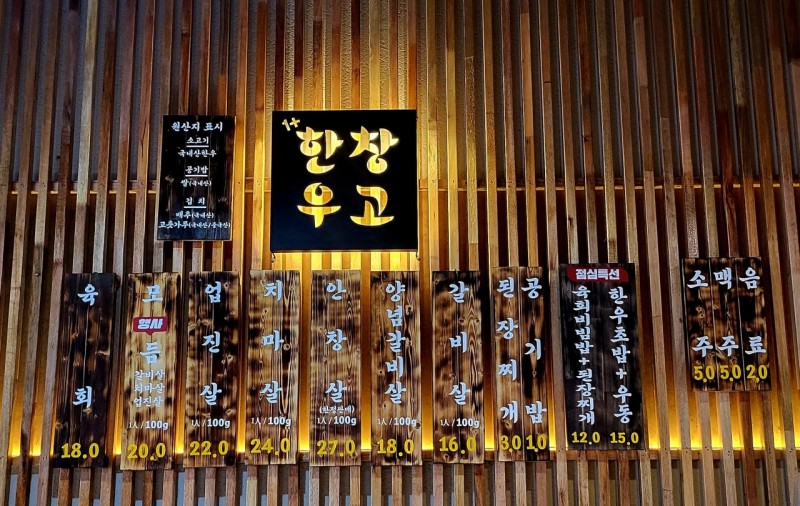 원산지 표시
소고기
국내산한우
공기밥
쌀(국내산)
김치
배추(국내산)
고춧가루(국내산/중국산)
1+
한창
우고
육회
18.0
모듬
행사
갈비살
치마살
업진살
1人/100g
20.0
업진살
1人/100g
22.0
치마살
1人/100g
24.0
안창살
(한정판매)
1人/100g
27.0
양념갈비살
1人/100g
18.0
갈비살
1人/100g
16.0
된장찌개
3.0
공기밥
1.0
점심특선
육회비빔밥+된장찌개
12.0
한우초밥+우동
15.0
소주
5.0
맥주
5.0
음료
2.0